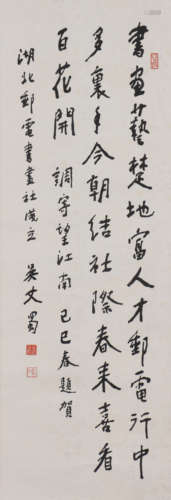 書画艺楚地富人才郵電行中
多裏手今朝结社際春来喜看
百花開　調寄望江南己巳春題賀
湖北郵電書畫社成立　吴丈蜀